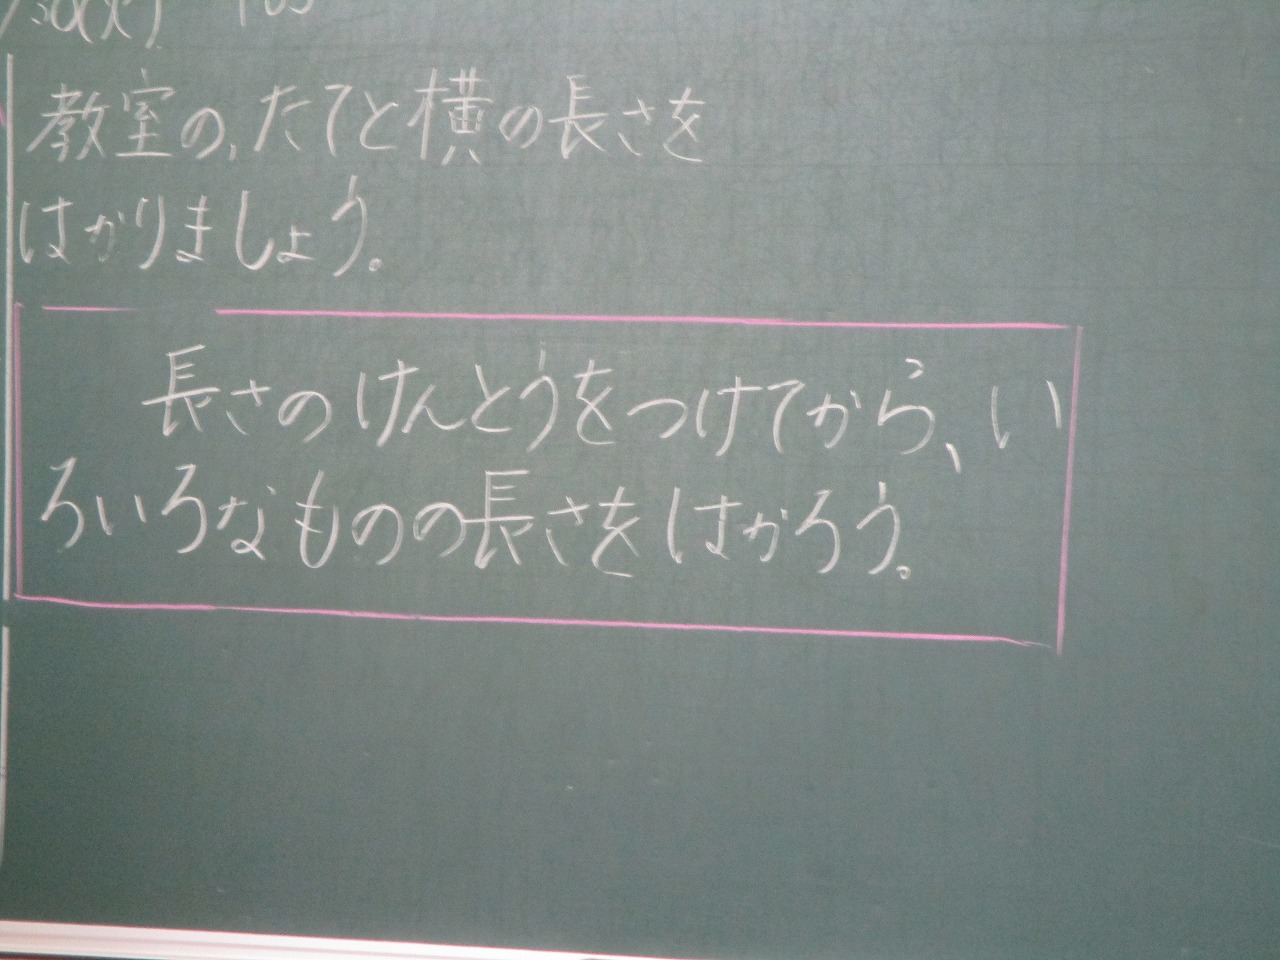 教室の、たてと横の長さを
はかりましょう。
長さのけんとうをつけてから、い
ろいろなものの長さをはかろう。